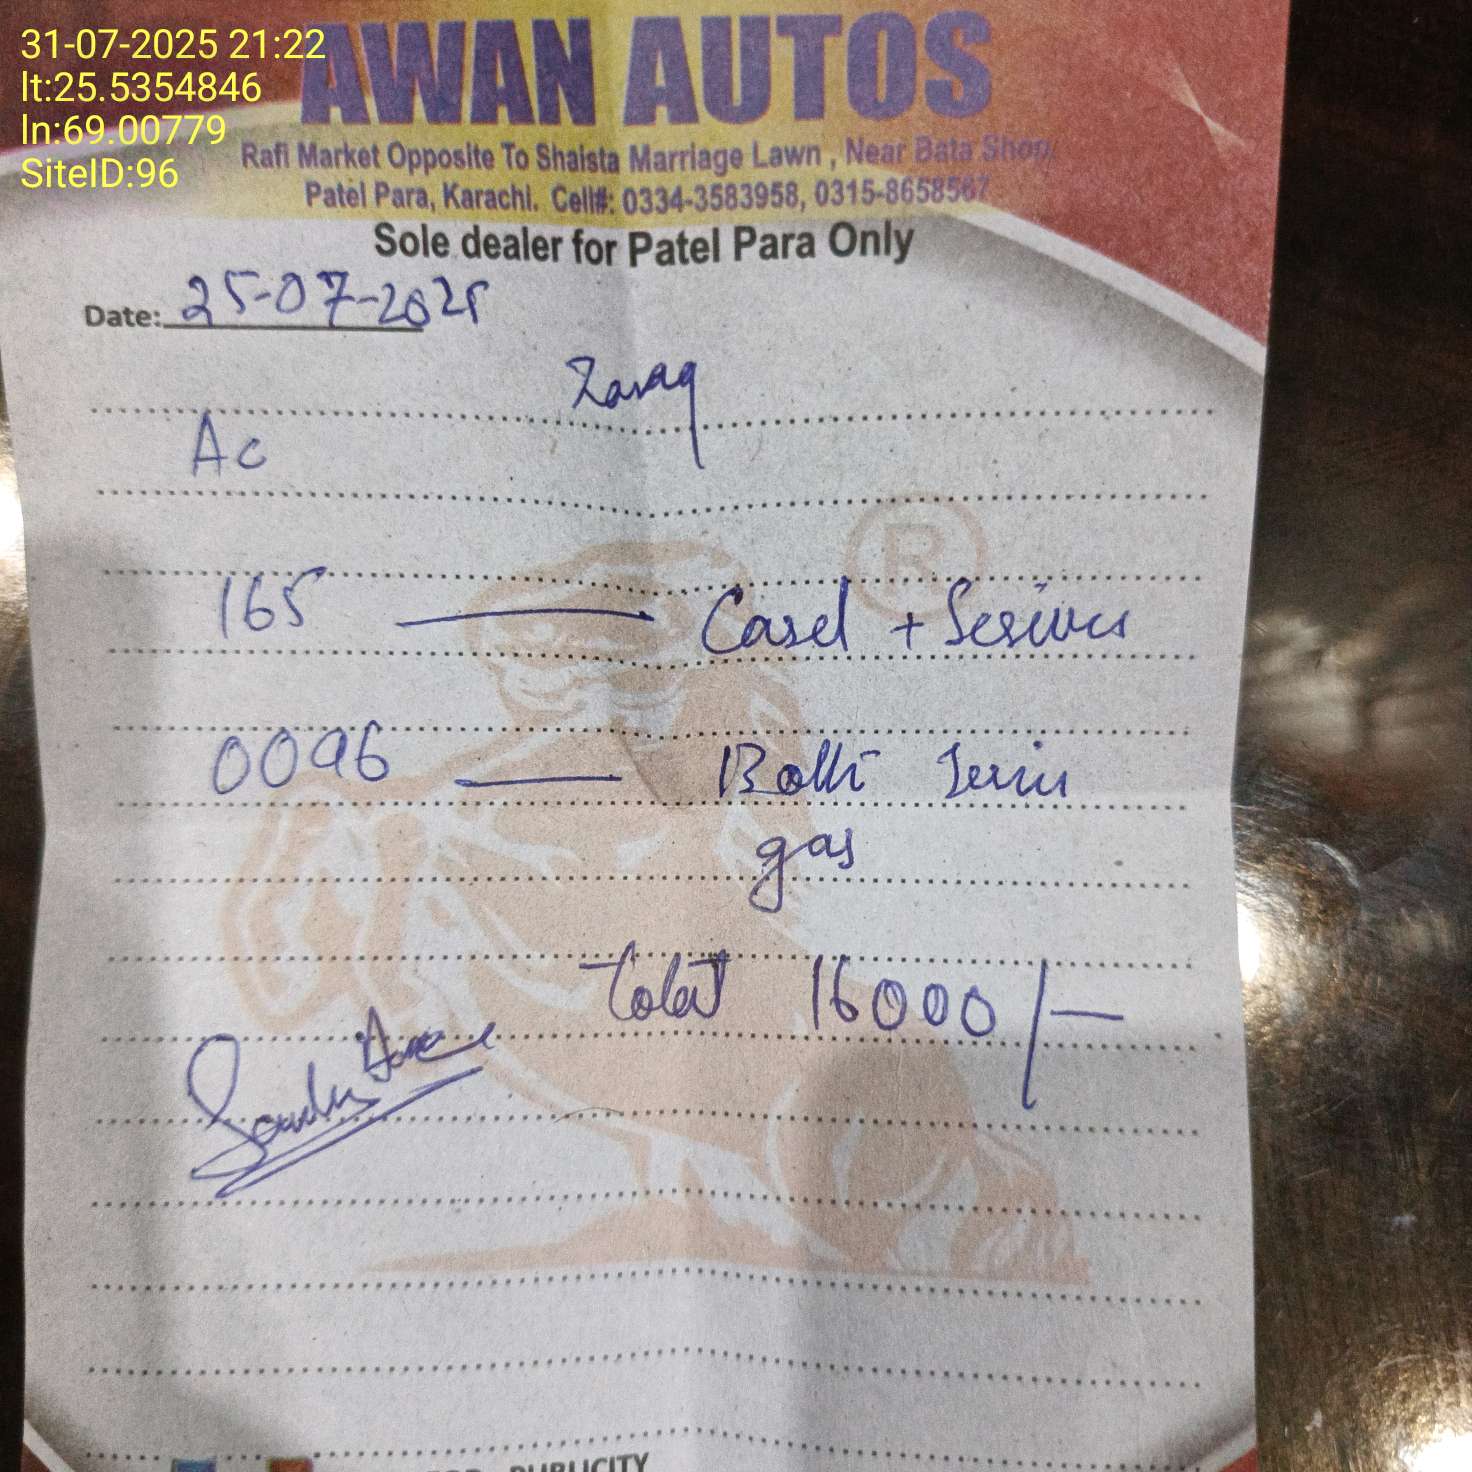 31-07-2025 21:22
lt:25.5354846
ln:69.00779
SiteID:96
AWAN AUTOS
Rafi Market Opposite To Shaista Marriage Lawn, Near Bata Shop
Patel Para, Karachi. Cell#: 0334-3583958, 0315-8658567
Sole dealer for Patel Para Only
Date: 25-07-2025
Zaraq
Ac
165 — Casel + Serives
0096 —
gas
Total 16000/-
PUBLICITY